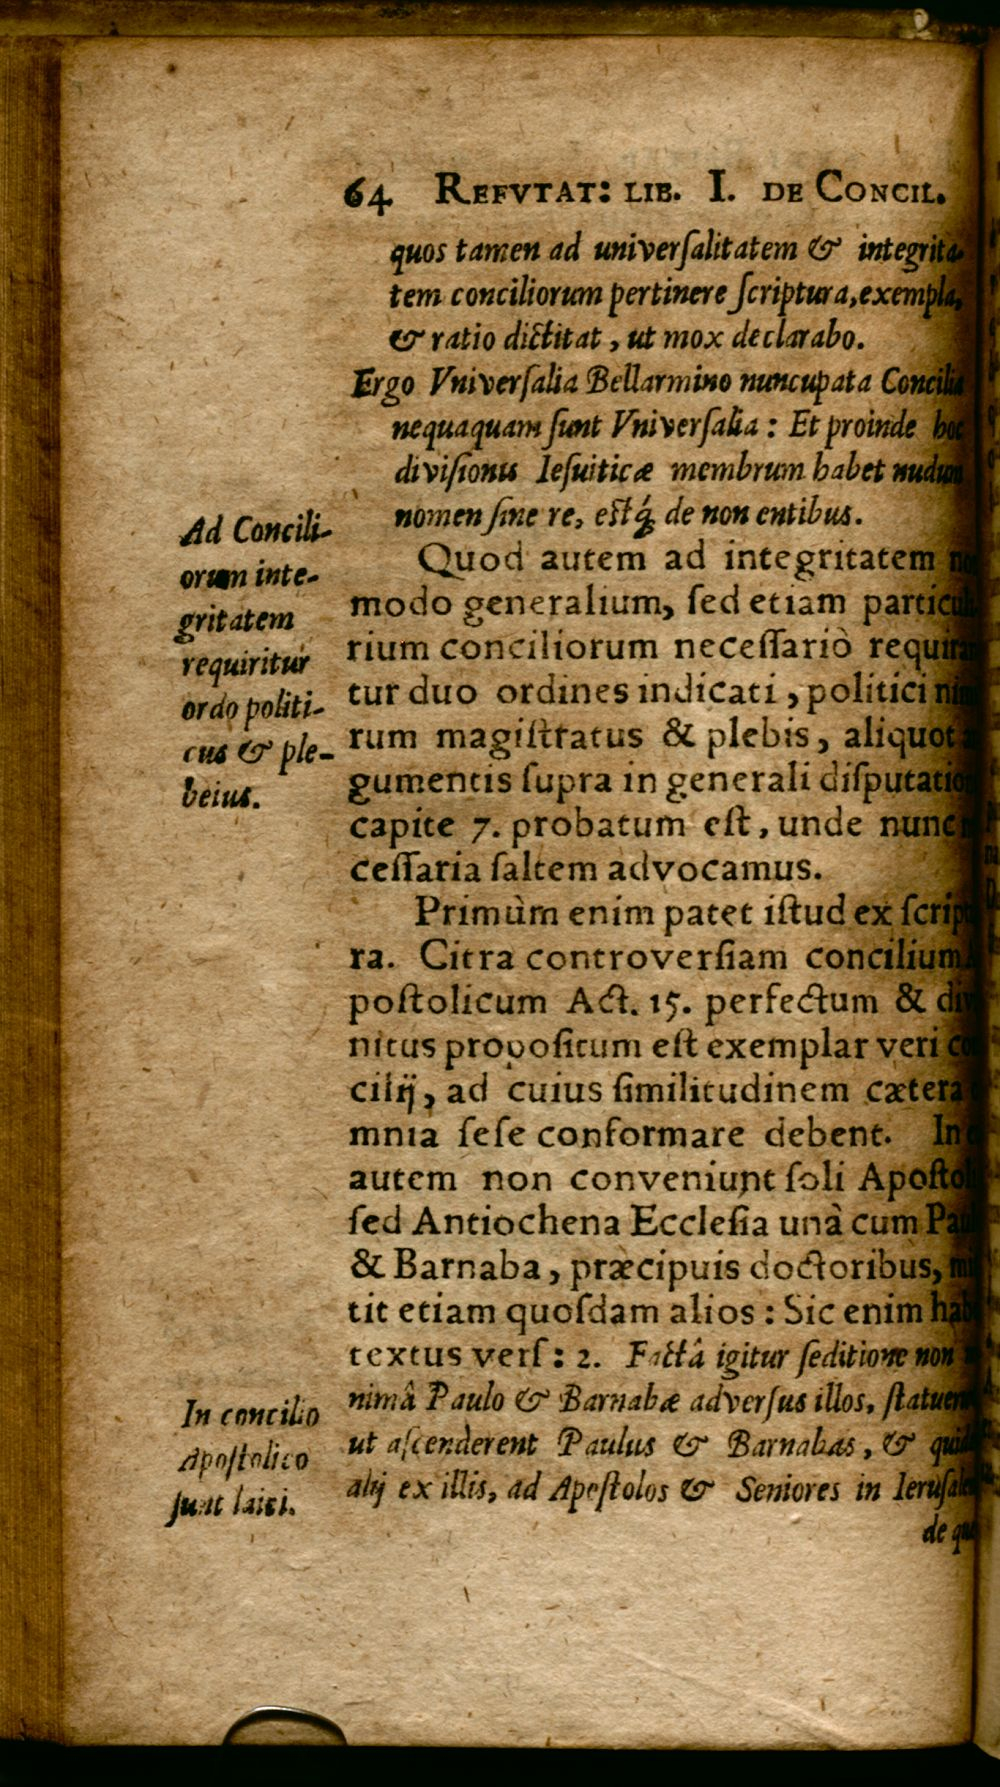 64 REFVTAT: LIB. I. DE CONCIL.
quos tamen ad universalitatem & integrita-
tem conciliorum pertinere scriptura, exempla,
& ratio dictitat, ut mox declarabo.
Ergo Vniversalia Bellarmino nuncupata Concilia
nequaquam sunt Vniversalia: Et proinde hoc
divisionis Iesuiticæ membrum habet nudum
nomen sine re, estq́; de non entibus.
Ad Concili-
orum inte-
gritatem
requiritur
ordo politi-
cus & ple-
beius.
Quod autem ad integritatem
modo generalium, sed etiam
rium conciliorum necessariò
tur duo ordines indicati, politici
rum magistratus & plebis, aliquot
gumentis supra in generali
capite 7. probatum est, unde nunc
cessaria saltem advocamus.
Primùm enim patet istud ex
ra. Citra controversiam concilium
postolicum Act. 15. perfectum &
nitus propositum est exemplar veri
cilij, ad cuius similitudinem cætera
mnia sese conformare debent. In
autem non conveniunt soli
sed Antiochena Ecclesia unà cum
& Barnaba, præcipuis doctoribus,
tit etiam quosdam alios: Sic enim
textus vers: 2. Factâ igitur seditione non
nimâ Paulo & Barnabæ adversus illos,
ut ascenderent Paulus & Barnabas, &
alij ex illis, ad Apostolos & Seniores in
In concilio
Apostolico
sunt laici.
de